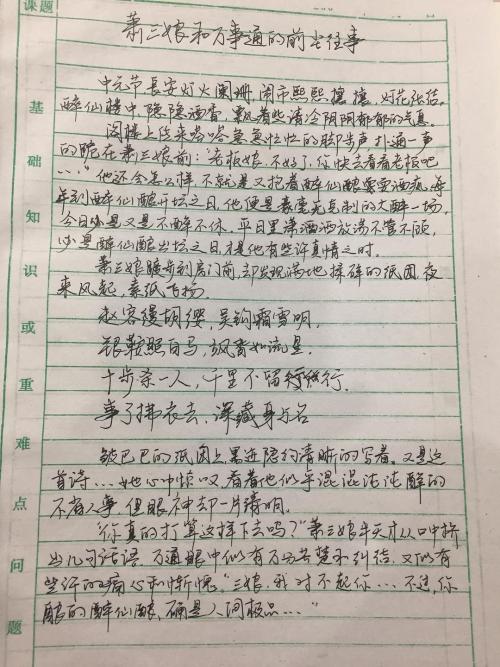 课题
萧三娘和万事通的前尘往事
基础知识或重难点问题
中元节长安灯火阑珊,闹市熙熙攘攘,灯花张结。
醉仙楼中,隐隐酒香,飘着些清冷阴阴郁郁的气息。
阁楼上传来嗒嗒急急忙忙的脚步声,扑通一声
的跪在萧三娘前:“老板娘,不好了,你快去看看老板吧
……”他还会怎么样,不就是又抱着醉仙酿耍耍酒疯,每
年到醉仙酿开坛之日,他便是毫无克制的大醉一场,
今日必是又是不醉不休。平日里潇洒放荡不管不顾,
必是醉仙酿出坛之日,才是他有些许真情之时。
萧三娘踱步到房门前,却发现满地揉碎的纸团,夜
来风起,素纸飞扬。
赵客缦胡缨,吴钩霜雪明,
银鞍照白马,飒沓如流星,
十步杀一人,千里不留行。
事了拂衣去,深藏身与名
皱巴巴的纸团上墨迹隐约清晰的写着,又是这
首诗……她心中惊叹,看着他似乎混混沌沌醉的
不省人事,但眼神却一片清明。
“你真的打算这样下去吗?”萧三娘半天才从口中挤
出几句话语,万通眼中似有万分苦楚和纠结,又似有
些许的痛心和惭愧“三娘,我对不起你…不过,你
酿的醉仙酿,确是人间极品……”